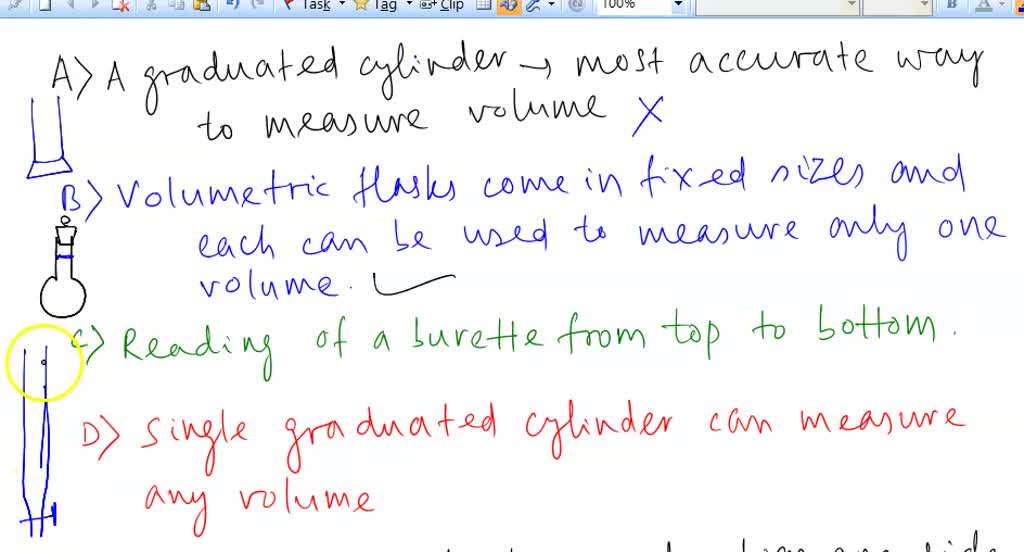 Task Tag Clip 100% B A
A) A graduated cylinder → most accurate way
to measure volume X
B) Volumetric flasks come in fixed sizes and
each can be used to measure only one
volume. ✓
C) Reading of a burette from top to bottom.
D) Single graduated cylinder can measure
any volume